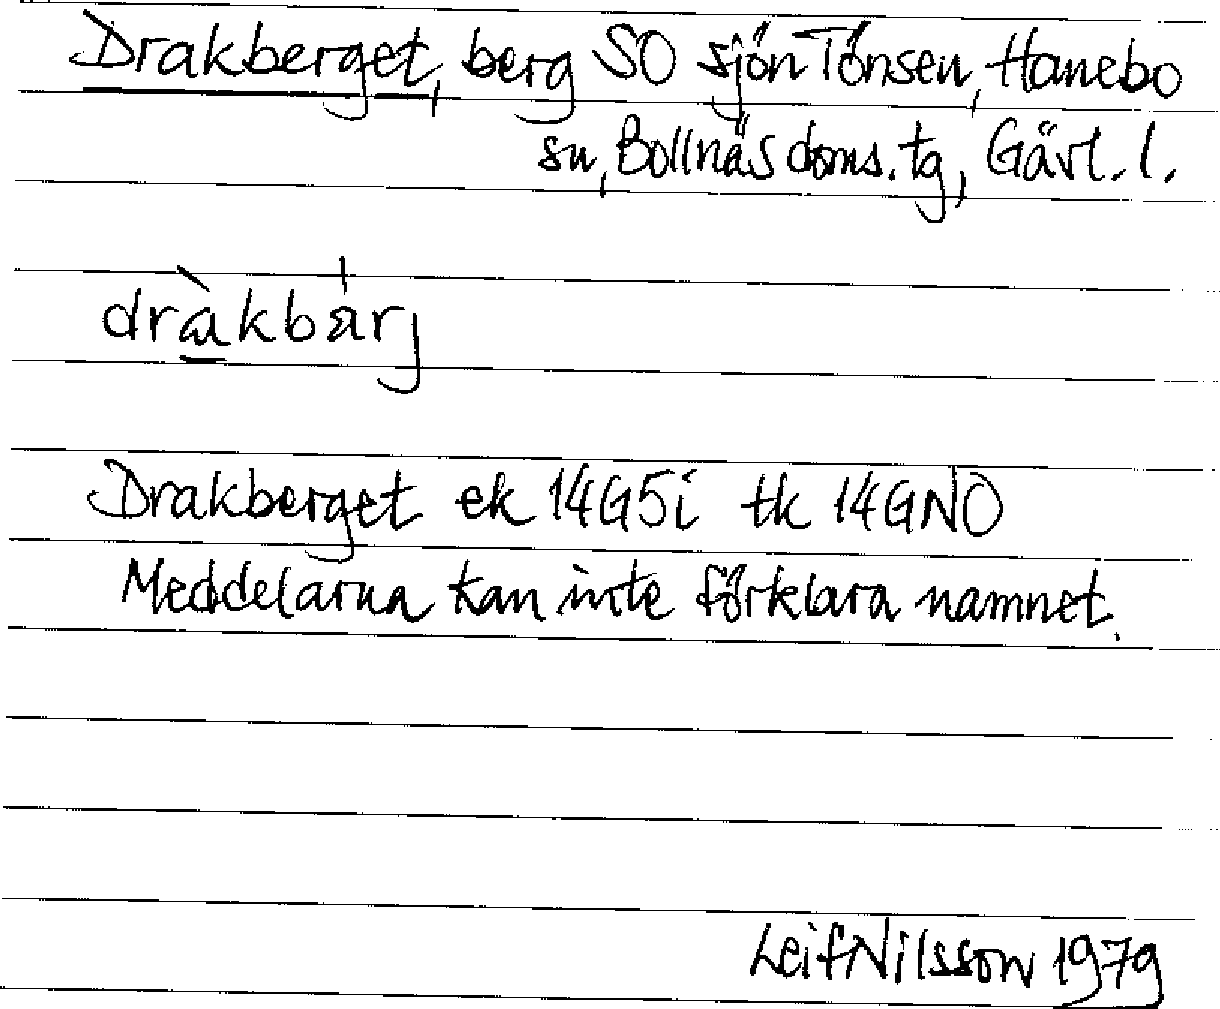 Drakberget, berg SO sjön Tönsen, Hanebo
sn, Bollnäs doms. tg, Gävl. l.
dràkbär̩j
Drakberget ek 14G5i tk 14GNO
Meddelarna kan inte förklara namnet.
Leif Nilsson 1979